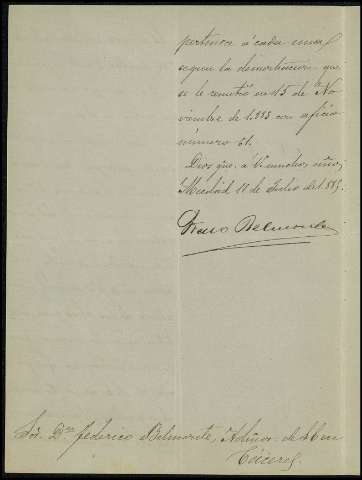 pertenece á cada una
segun la demostracion que
se le remitió en 15 de No
viembre de 1.883 con oficio
número 61.
Dios gue. á V. muchos años
Madrid 11 de Julio de 1.885.
Belmonte
Sor. Dn. Federico Belmonte, de
Cáceres